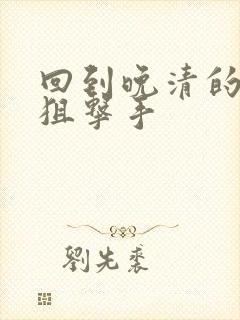 回到晚清的
狙撃手
劉先裘